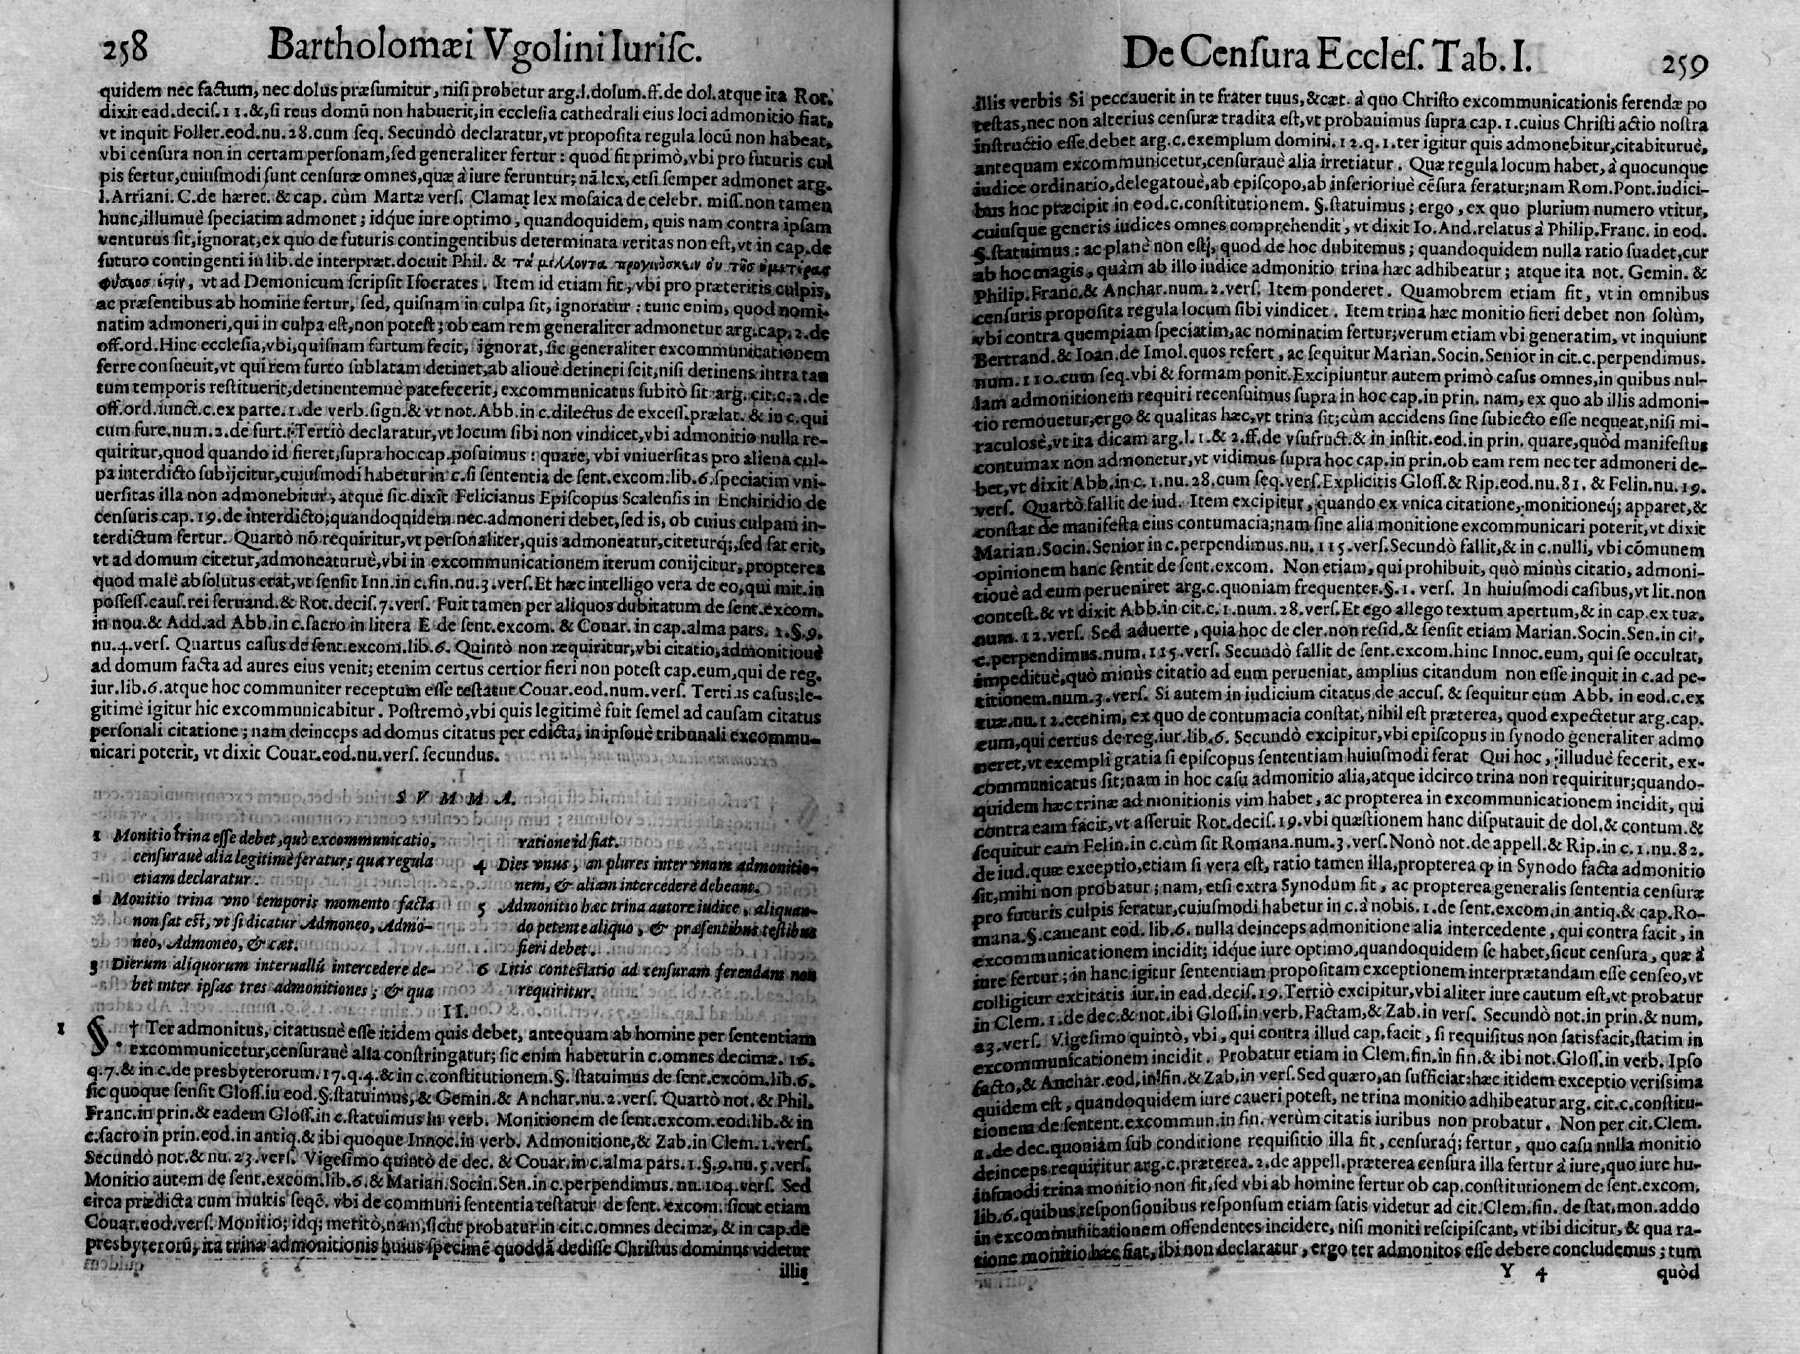 258 Bartholomæi Vgolini Iurisc.
quidem nec factum, nec dolus præsumitur, nisi probetur arg.l.dolum.ff.de dol.atque ita Rot.
dixit ead.decis.11.&,si reus domū non habuerit,in ecclesia cathedrali eius loci admonitio fiat,
vt inquit Foller.eod.nu.28.cum seq. Secundò declaratur,vt proposita regula locū non habeat,
vbi censura non in certam personam,sed generaliter fertur: quod fit primò,vbi pro futuris cul
pis fertur,cuiusmodi sunt censuræ omnes,quæ à iure feruntur; nā lex, etsi semper admonet arg.
l.Arriani. C.de hæret. & cap. cùm Martæ vers. Clamat lex mosaica de celebr. miss.non tamen
hunc,illumuè speciatim admonet; idq́ue iure optimo, quandoquidem, quis nam contra ipsam
venturus sit,ignorat,ex quo de futuris contingentibus determinata veritas non est,vt in cap.de
futuro contingenti in lib.de interpræt.docuit Phil. & τὰ μέλλοντα προγινώσκειν οὐ τῆσ ἡμετέρας
φύσεοσ ἐςὶν, vt ad Demonicum scripsit Isocrates. Item id etiam fit, vbi pro præteritis culpis,
ac præsentibus ab homine fertur, sed, quisnam in culpa sit, ignoratur: tunc enim, quod nomi-
natim admoneri,qui in culpa est,non potest; ob eam rem generaliter admonetur arg.cap.2.de
off.ord.Hinc ecclesia,vbi,quisnam furtum fecit, ignorat, sic generaliter excommunicationem
ferre consueuit,vt qui rem furto sublatam detinet,ab alioue detineri scit,nisi detinens intra tan
tum temporis restituerit,detinentemuè patefecerit, excommunicatus subitò sit arg.cit.c.2.de
off.ord.iunct.c.ex parte.1.de verb.sign.& vt not. Abb.in c.dilectus de excess.prælat.& in c.qui
cum fure.num.2.de furt. Tertiò declaratur,vt locum sibi non vindicet,vbi admonitio nulla re-
quiritur,quod quando id fieret,supra hoc cap.posuimus: quare, vbi vniuersitas pro aliena cul-
pa interdicto subijcitur,cuiusmodi habetur in c.si sententia de sent.excom.lib.6.speciatim vni-
uersitas illa non admonebitur, atque sic dixit Felicianus Episcopus Scalensis in Enchiridio de
censuris cap.19.de interdicto;quandoquidem nec admoneri debet,sed is, ob cuius culpam in-
terdictum fertur. Quartò nō requiritur,vt personaliter,quis admoneatur,citeturq́;,sed sat erit,
vt ad domum citetur,admoneaturuè,vbi in excommunicationem iterum conijcitur,propterea
quod malè absolutus erat,vt sensit Inn.in c.fin.nu.3.vers.Et hæc intelligo vera de eo,qui mit.in
possess.caus.rei seruand.& Rot.decis.7.vers. Fuit tamen per aliquos dubitatum de sent.excom.
in nou.& Add.ad Abb.in c.sacro in litera E de sent.excom. & Couar. in cap.alma pars. 1.§.9.
nu.4.vers. Quartus casus de sent.excom.lib.6. Quintò non requiritur,vbi citatio,admonitioué
ad domum facta ad aures eius venit; etenim certus certior fieri non potest cap.eum,qui de reg.
iur.lib.6.atque hoc communiter receptum esse testatur Couar.eod.num.vers. Tertius casus;le-
gitimè igitur hic excommunicabitur. Postremò,vbi quis legitimè fuit semel ad causam citatus
personali citatione; nam deinceps ad domus citatus per edicta, in ipsoué tribunali excommu-
nicari poterit, vt dixit Couar.eod.nu.vers secundus.
S V M M A.
1 Monitio trina esse debet,quò excommunicatio,
censurauè alia legitimè feratur; qua regula
etiam declaratur.
2 Monitio trina vno temporis momento facta
non sat est, vt si dicatur Admoneo, Admo-
neo, Admoneo, & cæt.
3 Dierum aliquorum interuallū intercedere de-
bet inter ipsas tres admonitiones; & qua
ratione id fiat.
4 Dies vnus, an plures inter vnam admonitio-
nem, & aliam intercedere debeant.
5 Admonitio hæc trina autore iudice, aliquan-
do petente aliquo, & præsentibus testibus
fieri debet.
6 Litis contestatio ad censuram ferendam non
requiritur.
II.
1 §. † Ter admonitus, citatusuè esse itidem quis debet, antequam ab homine per sententiam
excommunicetur,censurauè alia constringatur; sic enim habetur in c.omnes decimæ. 16.
q.7.& in c.de presbyterorum.17.q.4.& in c.constitutionem.§. statuimus de sent.excom.lib.6.
sic quoque sensit Gloss.in eod.§.statuimus,& Gemin.& Anchar.nu.2.vers. Quartò not.& Phil.
Franc.in prin.& eadem Gloss.in c.statuimus in verb. Monitionem de sent.excom.eod.lib.& in
c.sacro in prin.eod.in antiq.& ibi quoque Innoc.in verb. Admonitione,& Zab.in Clem.1.vers.
Secundò not.& nu.23.vers. Vigesimo quintò de dec. & Couar.in c.alma pars.1.§.9.nu.5.vers.
Monitio autem de sent.excom.lib.6.& Marian.Socin.Sen.in c.perpendimus. nu.104.vers. Sed
circa prædicta cum multis seqē. vbi de communi sententia testatur de sent. excom. sicut etiam
Couar.eod.vers. Monitio; idq́; meritò,nam,sicut probatur in cit.c.omnes decimæ, & in cap.de
presbyterorū, ita trinæ admonitionis huius specimē quoddā dedisse Christus dominus videtur
illis
De Censura Eccles. Tab. I. 259
illis verbis Si peccauerit in te frater tuus,&cæt. à quo Christo excommunicationis ferendæ po
testas,nec non alterius censuræ tradita est,vt probauimus supra cap.1.cuius Christi actio nostra
instructio esse debet arg.c.exemplum domini.12.q.1.ter igitur quis admonebitur,citabituruè,
antequam excommunicetur,censurauè alia irretiatur. Quæ regula locum habet, à quocunque
iudice ordinario,delegatouè,ab episcopo,ab inferioriuè cēsura feratur;nam Rom.Pont.iudici-
bus hoc præcipit in eod.c.constitutionem. §.statuimus; ergo, ex quo plurium numero vtitur,
cuiusque generis iudices omnes comprehendit, vt dixit Io.And.relatus à Philip.Franc. in eod.
§.statuimus: ac planè non est, quod de hoc dubitemus; quandoquidem nulla ratio suadet,cur
ab hoc magis, quàm ab illo iudice admonitio trina hæc adhibeatur; atque ita not. Gemin. &
Philip.Franc.& Anchar.num.2.vers. Item ponderet. Quamobrem etiam fit, vt in omnibus
censuris proposita regula locum sibi vindicet. Item trina hæc monitio fieri debet non solùm,
vbi contra quempiam speciatim,ac nominatim fertur;verum etiam vbi generatim, vt inquiunt
Bertrand.& Ioan.de Imol.quos refert, ac sequitur Marian.Socin.Senior in cit.c.perpendimus.
num.110.cum seq.vbi & formam ponit.Excipiuntur autem primò casus omnes,in quibus nul-
lam admonitionem requiri recensuimus supra in hoc cap.in prin. nam, ex quo ab illis admoni-
tio remouetur,ergo & qualitas hæc,vt trina sit;cùm accidens sine subiecto esse nequeat,nisi mi-
raculosè,vt ita dicam arg.l.1.& 2.ff.de vsufruct.& in instit.eod.in prin. quare,quòd manifestus
contumax non admonetur,vt vidimus supra hoc cap.in prin.ob eam rem nec ter admoneri de-
bet,vt dixit Abb.in c.1.nu.28.cum seq.vers.Explicitis Gloss.& Rip.eod.nu.81.& Felin.nu.19.
vers. Quartò fallit de iud. Item excipitur, quando ex vnica citatione, monitioneq́; apparet,&
constat de manifesta eius contumacia;nam sine alia monitione excommunicari poterit,vt dixit
Marian.Socin.Senior in c.perpendimus.nu.115.vers.Secundò fallit,& in c.nulli, vbi cōmunem
opinionem hanc sentit de sent.excom. Non etiam,qui prohibuit, quò minùs citatio, admoni-
tiouè ad eum perueniret arg.c.quoniam frequenter.§.1. vers. In huiusmodi casibus,vt lit.non
contest.& vt dixit Abb.in cit.c.1.num.28.vers.Et ego allego textum apertum,& in cap.ex tuæ.
num.12.vers. Sed aduerte, quia hoc de cler.non resid.& sensit etiam Marian.Socin.Sen.in cit.
c.perpendimus.num.115.vers. Secundò fallit de sent.excom.hinc Innoc.eum, qui se occultat,
impedituè,quò minùs citatio ad eum perueniat, amplius citandum non esse inquit in c.ad pe-
titionem.num.3.vers. Si autem in iudicium citatus de accus. & sequitur eum Abb. in eod.c.ex
tuæ.nu.12.etenim, ex quo de contumacia constat, nihil est præterea, quod expectetur arg.cap.
eum,qui certus de reg.iur.lib.6. Secundò excipitur,vbi episcopus in synodo generaliter admo
neret,vt exempli gratia si episcopus sententiam huiusmodi ferat Qui hoc, illudue fecerit, ex-
communicatus sit;nam in hoc casu admonitio alia,atque idcirco trina non requiritur;quando-
quidem hæc trinæ admonitionis vim habet, ac propterea in excommunicationem incidit, qui
contra eam facit,vt asseruit Rot.decis.19.vbi quæstionem hanc disputauit de dol.& contum.&
sequitur eam Felin.in c.cùm sit Romana.num.3.vers. Nonò not.de appell.& Rip.in c.1.nu.82.
de iud.quæ exceptio,etiam si vera est, ratio tamen illa,propterea ꝙ in Synodo facta admonitio
sit,mihi non probatur; nam, etsi extra Synodum sit, ac propterea generalis sententia censuræ
pro futuris culpis feratur,cuiusmodi habetur in c.à nobis.1.de sent.excom.in antiq.& cap.Ro-
mana.§.caueant eod. lib.6. nulla deinceps admonitione alia intercedente, qui contra facit, in
excommunicationem incidit; idq́ue iure optimo,quandoquidem se habet,sicut censura, quæ à
iure fertur; in hanc igitur sententiam propositam exceptionem interprætandam esse censeo,vt
colligitur ex citatis iur.in ead.decis.19.Tertiò excipitur,vbi aliter iure cautum est,vt probatur
in Clem.1.de dec.& not.ibi Gloss.in verb.Factam,& Zab.in vers. Secundò not.in prin.& num.
23.vers. Vigesimo quintò, vbi, qui contra illud cap.facit, si requisitus non satisfacit,statim in
excommunicationem incidit. Probatur etiam in Clem.fin.in fin.& ibi not.Gloss.in verb. Ipso
facto,& Anchar.eod.in fin.& Zab.in vers.Sed quæro,an sufficiat:hæc itidem exceptio verissima
quidem est, quandoquidem iure caueri potest, ne trina monitio adhibeatur arg. cit.c.constitu-
tionem de sentent.excommun.in fin. verùm citatis iuribus non probatur. Non per cit.Clem.
1.de dec.quoniam sub conditione requisitio illa fit, censuraq́; fertur, quo casu nulla monitio
deinceps requiritur arg.c.præterea.2.de appell.præterea censura illa fertur à iure,quo iure hu-
iusmodi trina monitio non fit,sed vbi ab homine fertur ob cap.constitutionem de sent.excom.
lib.6.quibus responsionibus responsum etiam satis videtur ad cit.Clem.fin. de stat.mon.addo
in excommunicationem offendentes incidere, nisi moniti rescipiscant, vt ibi dicitur, & qua ra-
tione monitio hæc fiat, ibi non declaratur, ergo ter admonitos esse debere concludemus; tum
Y 4 quòd